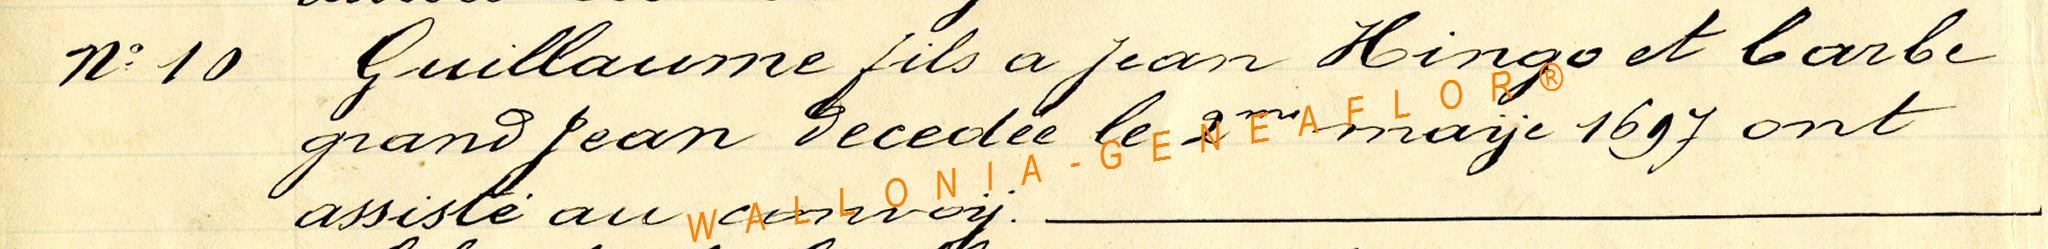 N° 10 Guillaume fils a Jean Hingo et barbe
grand Jean decedée le 2me maije 1697 ont
assisté au convoij.
WALLONIA-GENEAFLOR®